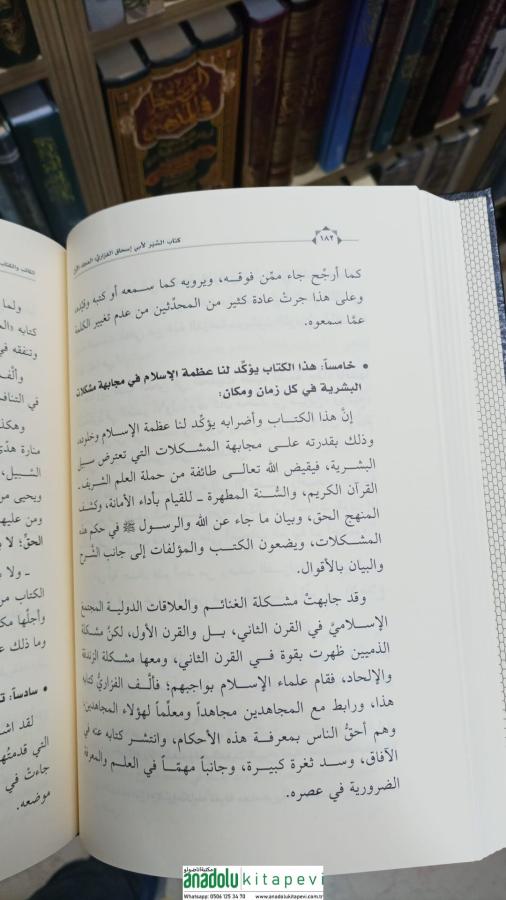 ١٨٢
كتاب السِّيَر لأبي إسحاق الفزاري، المجلد الأول
كما أرجّح جاء ممّن فوقه، ويرويه كما سمعه أو كتبه وقيّده،
وعلى هذا جرتْ عادة كثير من المحدّثين من عدم تغيير الكلمة
عمّا سمعوه.
• خامساً: هذا الكتاب يؤكّد لنا عظمة الإسلام في مجابهة مشكلات
البشرية في كل زمان ومكان:
إنَّ هذا الكتـاب وأضرابه يؤكّد لنـا عظمة الإسلام وخلوده،
وذلك بقدرته علـى مجابهة المشـكلات التي تعترض سبيل
البشرية، فيقيض الله تعالى طائفة من حملة العلم الشريف ـ
القرآن الكريم، والسُّنة المطهرة ـ للقيام بأداء الأمانة، وكشف
المنهج الحق، وبيان ما جاء عن الله والرسول ﷺ في حكم هذه
المشكلات، ويضعون الكتـب والمؤلفات إلى جانب الشَّرح
والبيان بالأقوال.
وقد جابهتْ مشـكلة الغنائـم والعلاقات الدوليـة المجتمع
الإسلاميَّ في القرن الثاني، بـل والقرن الأول، لكنَّ مشكلة
الذميين ظهرت بقوة فـي القرن الثاني، ومعها مشكلة الزندقة
والإلحاد، فقام علماء الإسلام بواجبهم؛ فألّـف الفزاريُّ كتابه
هذا، ورابط مع المجاهدين مجاهداً ومعلّماً لهؤلاء المجاهدين؛
وهم أحقُّ الناس بمعرفة هذه الأحكام، وانتشر كتابه عنه في
الآفاق، وسـد ثغرة كبيـرة، وجانباً مهمّـاً في العلم والمعرفة
الضرورية في عصره.
ولما
كتابه «الـ
وتنفقه في
وألّف
في التنافـ
وهكذ
منارة هدًى
السّبيل،
ويحيى مر
ومن عليهـ
الحقّ؛ لا يـ
ـ ولا
الكتاب من
وأجلّها مكـ
وما ذلك عـ
• سادساً: تـ
لقد اشـ
التي قدمتُهـ
جاءتْ في
موضعه.
مكتبة الأناضول
anadolukitapevi
Whatsapp: 0506 125 34 70
www.anadolukitapevi.com